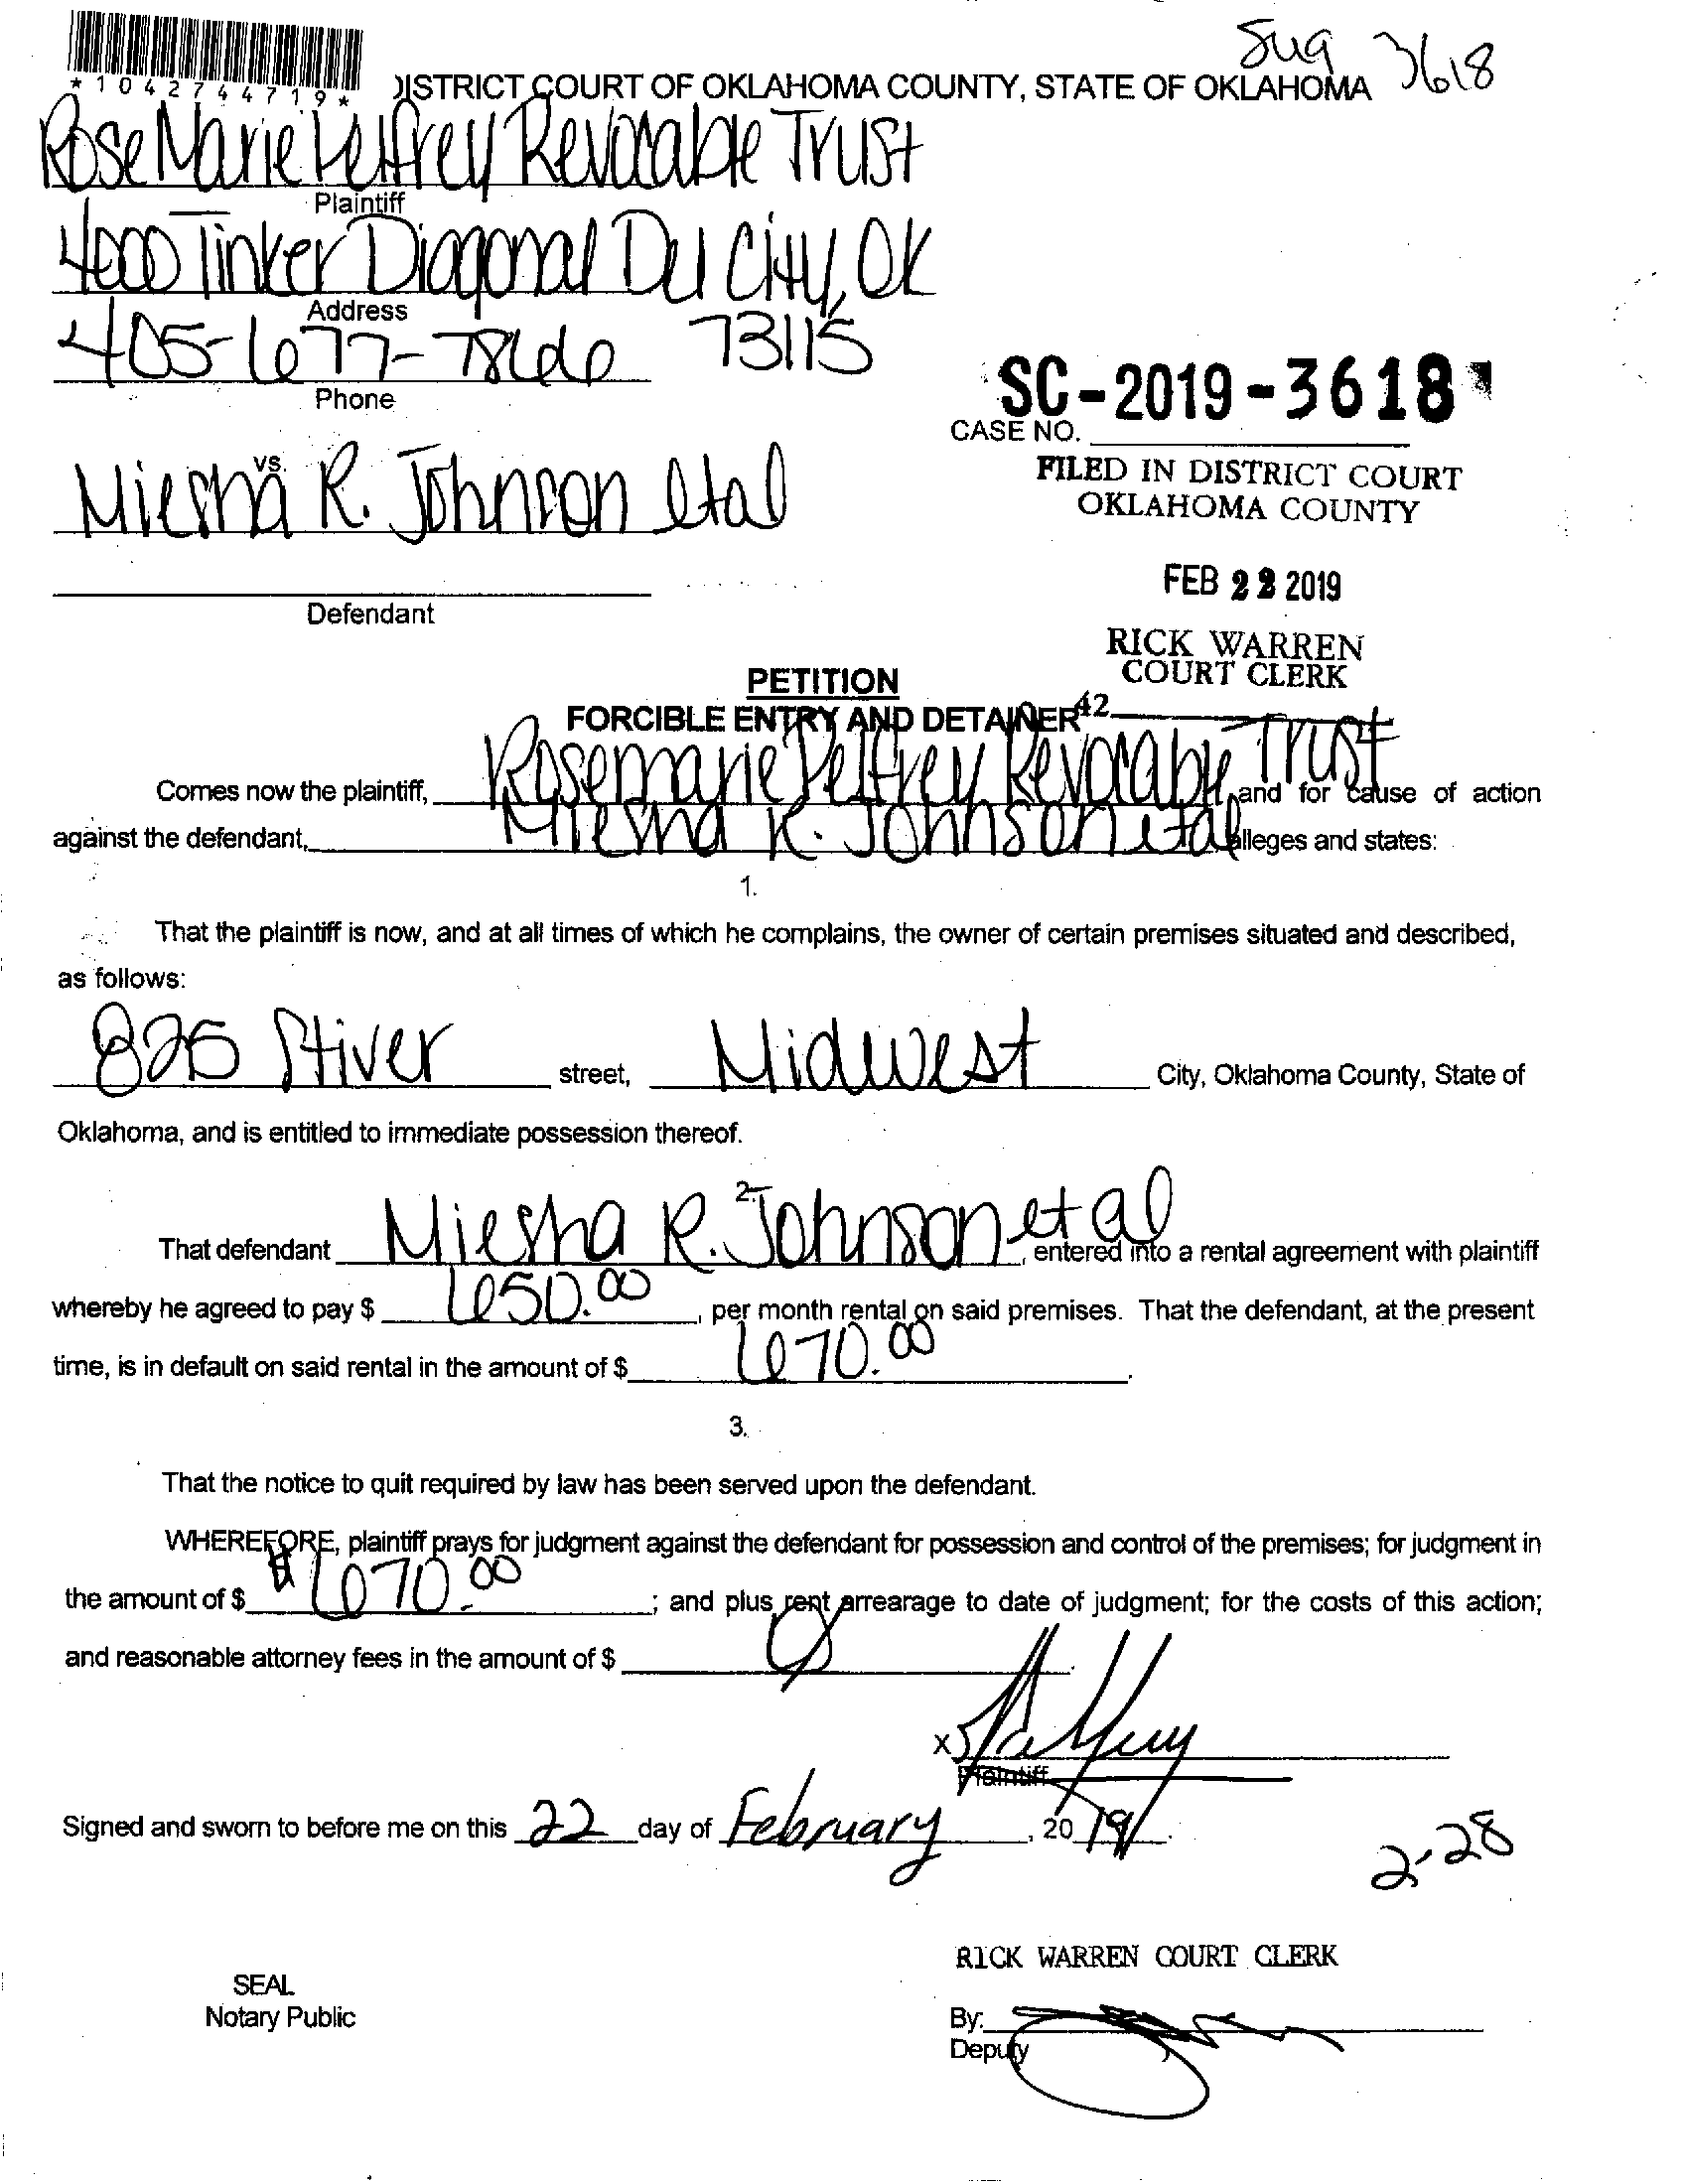 Sug 3618
*1042744719*
DISTRICT COURT OF OKLAHOMA COUNTY, STATE OF OKLAHOMA
Rose Marie Pelfrey Revocable Trust
Plaintiff
4000 Tinker Diagonal Del City, OK
Address
405-677-7866 73115
Phone
SC-2019-3618
CASE NO.
vs.
Miesha R. Johnson etal
FILED IN DISTRICT COURT
OKLAHOMA COUNTY
FEB 22 2019
Defendant
RICK WARREN
COURT CLERK
PETITION
42
FORCIBLE ENTRY AND DETAINER
Comes now the plaintiff, Rosemarie Pelfrey Revocable Trust and for cause of action
against the defendant, Miesha R. Johnson etal alleges and states:
1.
That the plaintiff is now, and at all times of which he complains, the owner of certain premises situated and described,
as follows:
825 Stiver street, Midwest City, Oklahoma County, State of
Oklahoma, and is entitled to immediate possession thereof.
2.
That defendant Miesha R. Johnson et al, entered into a rental agreement with plaintiff
whereby he agreed to pay $ 650.00, per month rental on said premises. That the defendant, at the present
time, is in default on said rental in the amount of $ 670.00.
3.
That the notice to quit required by law has been served upon the defendant.
WHEREFORE, plaintiff prays for judgment against the defendant for possession and control of the premises; for judgment in
the amount of $ $670.00; and plus rent arrearage to date of judgment; for the costs of this action;
and reasonable attorney fees in the amount of $ 0
X
Plaintiff
Signed and sworn to before me on this 22 day of February, 2019.
2-28
RICK WARREN COURT CLERK
SEAL
Notary Public
By:
Deputy